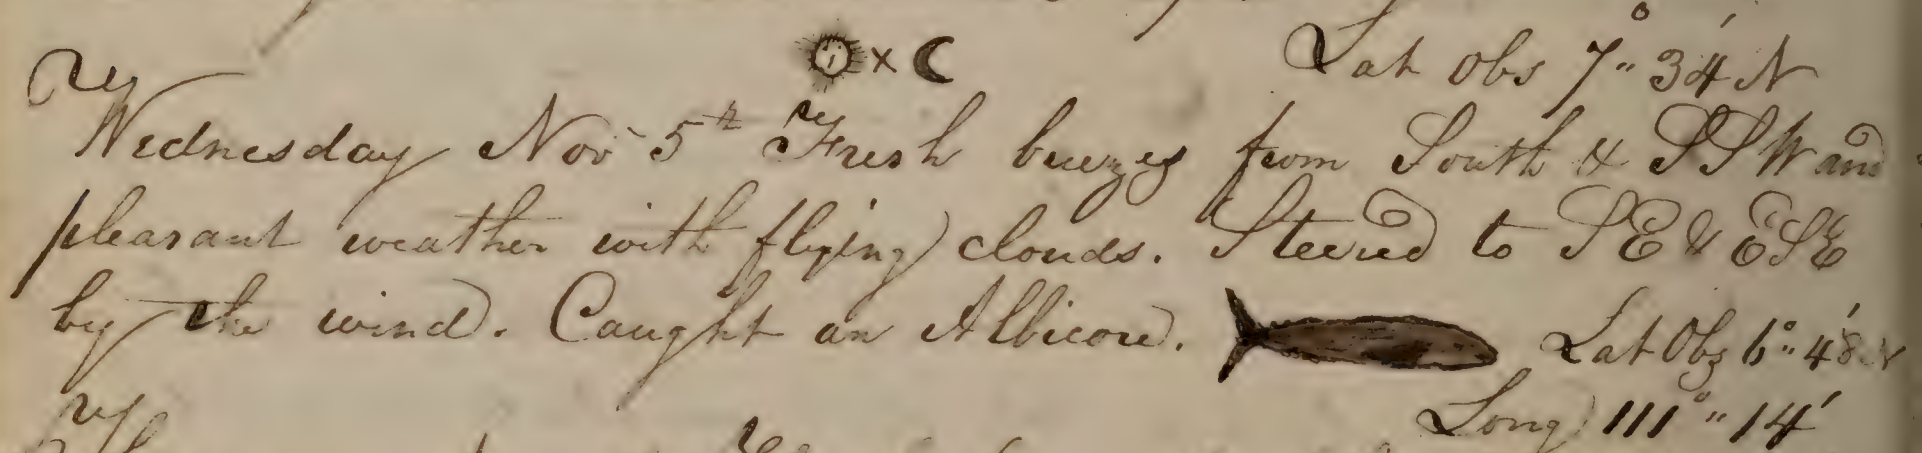 Lat Obs 7°" 34' N
Wednesday Nov 5th Fresh breezes from South & SSW and
pleasant weather with flying clouds. Steered to SE & ESE
by the wind. Caught an Albicore.
Lat Obs 6°" 48' N
Long 111°" 14'